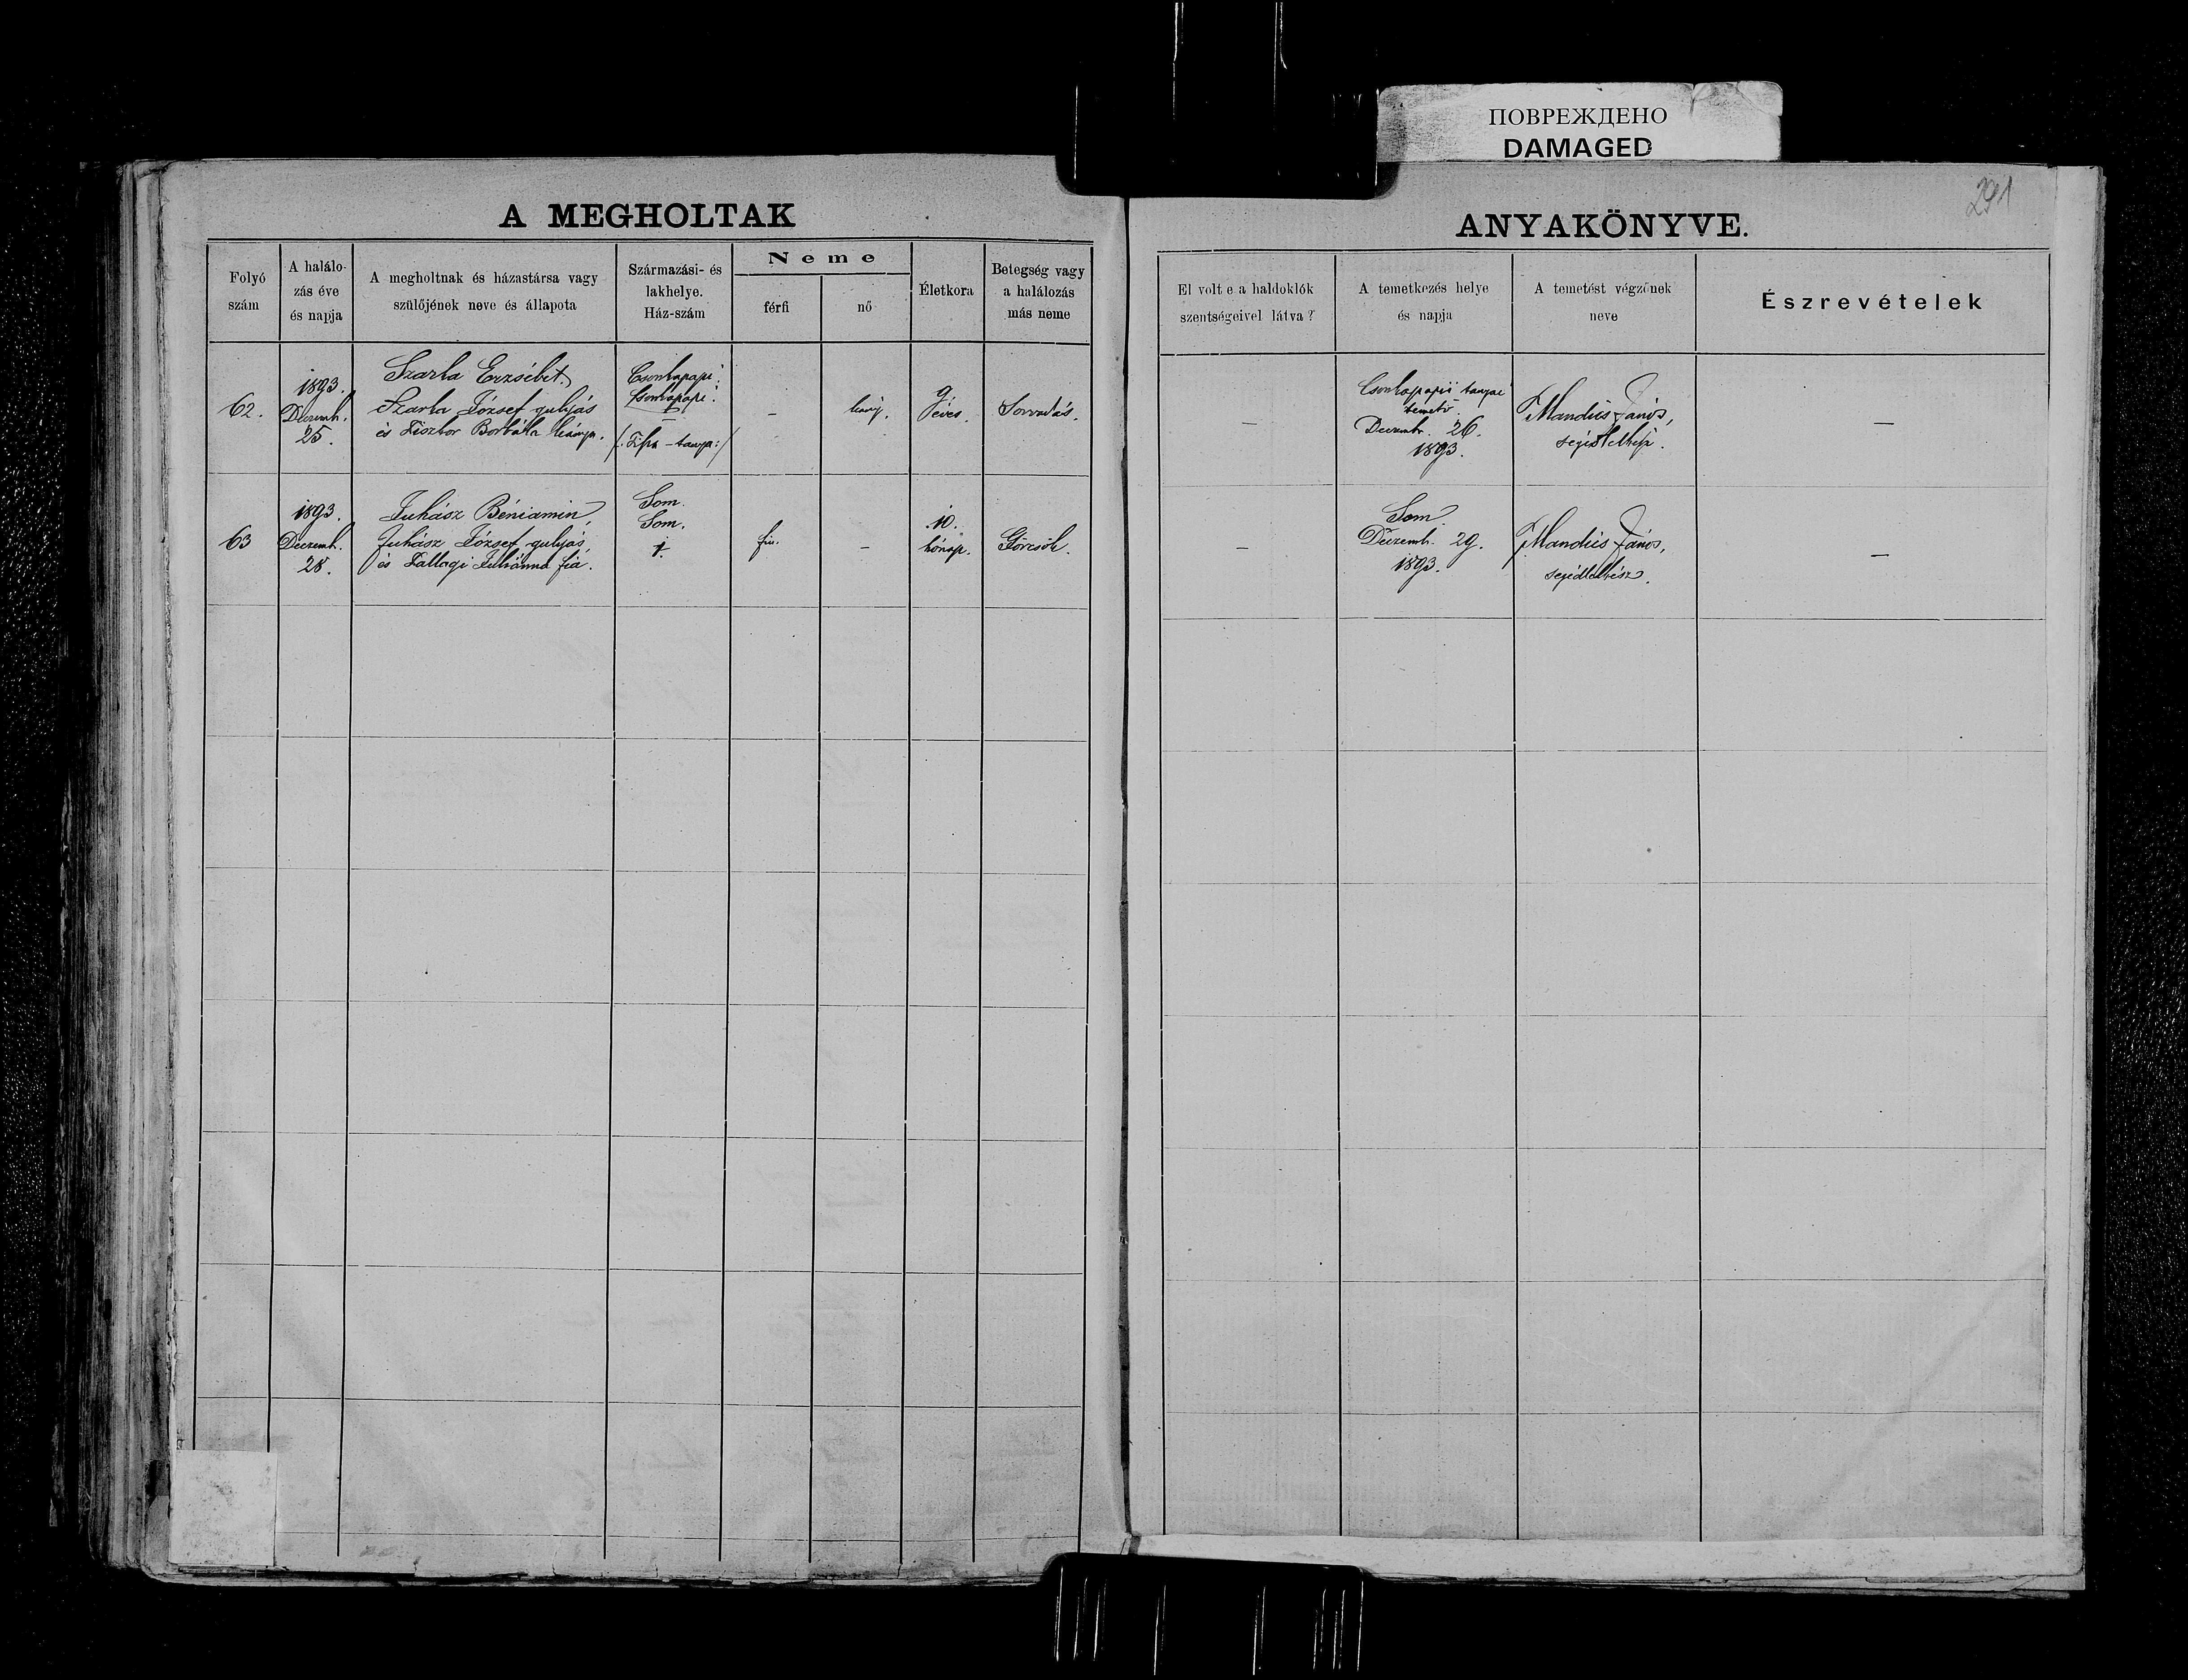 ПОВРЕЖДЕНО
DAMAGED
291
A MEGHOLTAK
Folyó szám
A halálo-
zás éve
és napja
A megholtnak és házastársa vagy
szülőjének neve és állapota
Származási- és
lakhelye.
Ház-szám
Neme
férfi
nő
Életkora
Betegség vagy
a halálozás
más neme
62.
1893.
Decemb.
25.
Szarka Erzsébet.
Szarka József gulyás
és Borbála leánya.
Csonkapapi.
Csonkapapi.
tanya:/
–
leány.
9
éves.
Sorvadás.
63
1893.
Decemb.
28.
Juhász Béniamin,
Juhász József gulyás,
és Juliánna fia.
Som.
Som.
fiu.
–
10.
hónap.
Görcsök.
ANYAKÖNYVE.
El volt e a haldoklók
szentségeivel látva?
A temetkezés helye
és napja
A temetést végzőnek
neve
Észrevételek
–
Csonkapapii tanyai
temető.
Decemb. 26.
1893.
János,
–
–
Som.
Decemb. 29.
1893.
János,
segédlelkész.
–